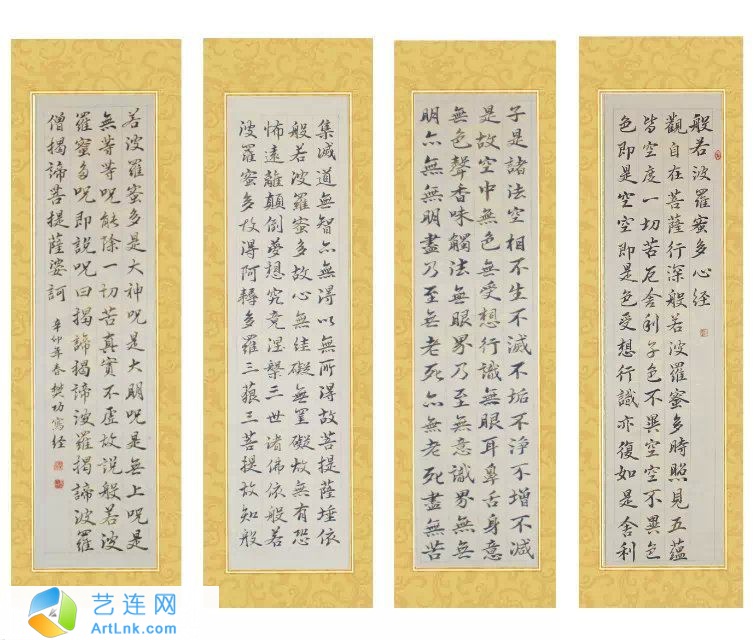 般若波羅蜜多心経
觀自在菩薩行深般若波羅蜜多時照見五蘊
皆空度一切苦厄舍利子色不異空空不異色
色即是空空即是色受想行識亦復如是舍利
子是諸法空相不生不滅不垢不淨不增不減
是故空中無色無受想行識無眼耳鼻舌身意
無色聲香味觸法無眼界乃至無意識界無無
明亦無無明盡乃至無老死亦無老死盡無苦
集滅道無智亦無得以無所得故菩提薩埵依
般若波羅蜜多故心無罣礙無罣礙故無有恐
怖遠離顛倒夢想究竟涅槃三世諸佛依般若
波羅蜜多故得阿耨多羅三藐三菩提故知般
若波羅蜜多是大神呪是大明呪是無上呪是
無等等呪能除一切苦真實不虛故說般若波
羅蜜多呪即說呪曰揭諦揭諦波羅揭諦波羅
僧揭諦菩提薩婆訶
辛卯年春樊功寫經
艺连网
ArtLnk.com